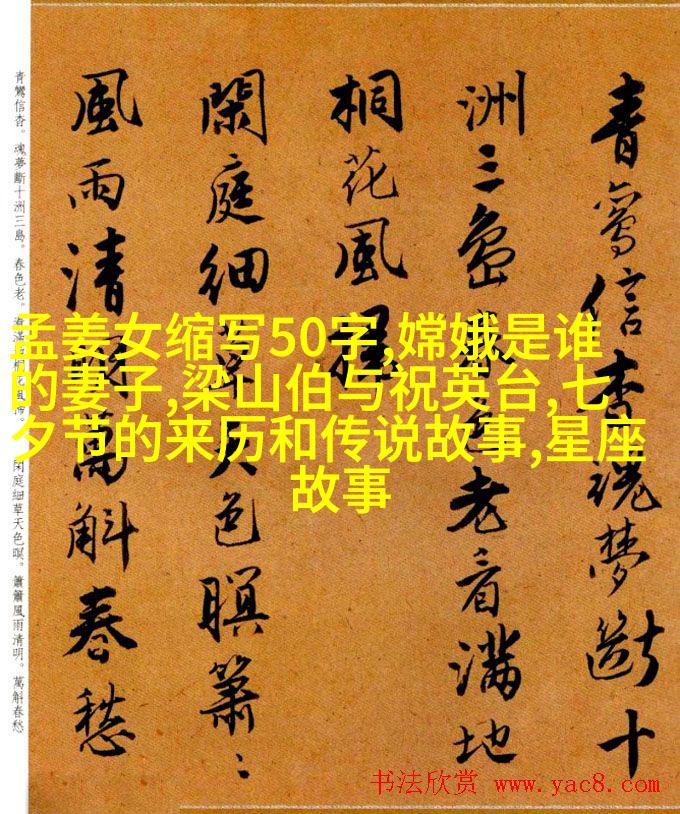 青鸞信杳魂夢斷十
洲三島春色老看滿地
桐花風掃
閑庭細草天色暝簫〻
風雨清明萬斛春愁
青鸞信杳。魂夢斷十洲三島。春色老。看滿地桐花風掃。閑庭細草天色暝。簫簫風雨清明。萬斛春愁
孟姜女缩写50字,嫦娥是谁
的妻子,梁山伯与祝英台,七
夕节的来历和传说故事,星座
故事
书法欣赏 www.yac8.com